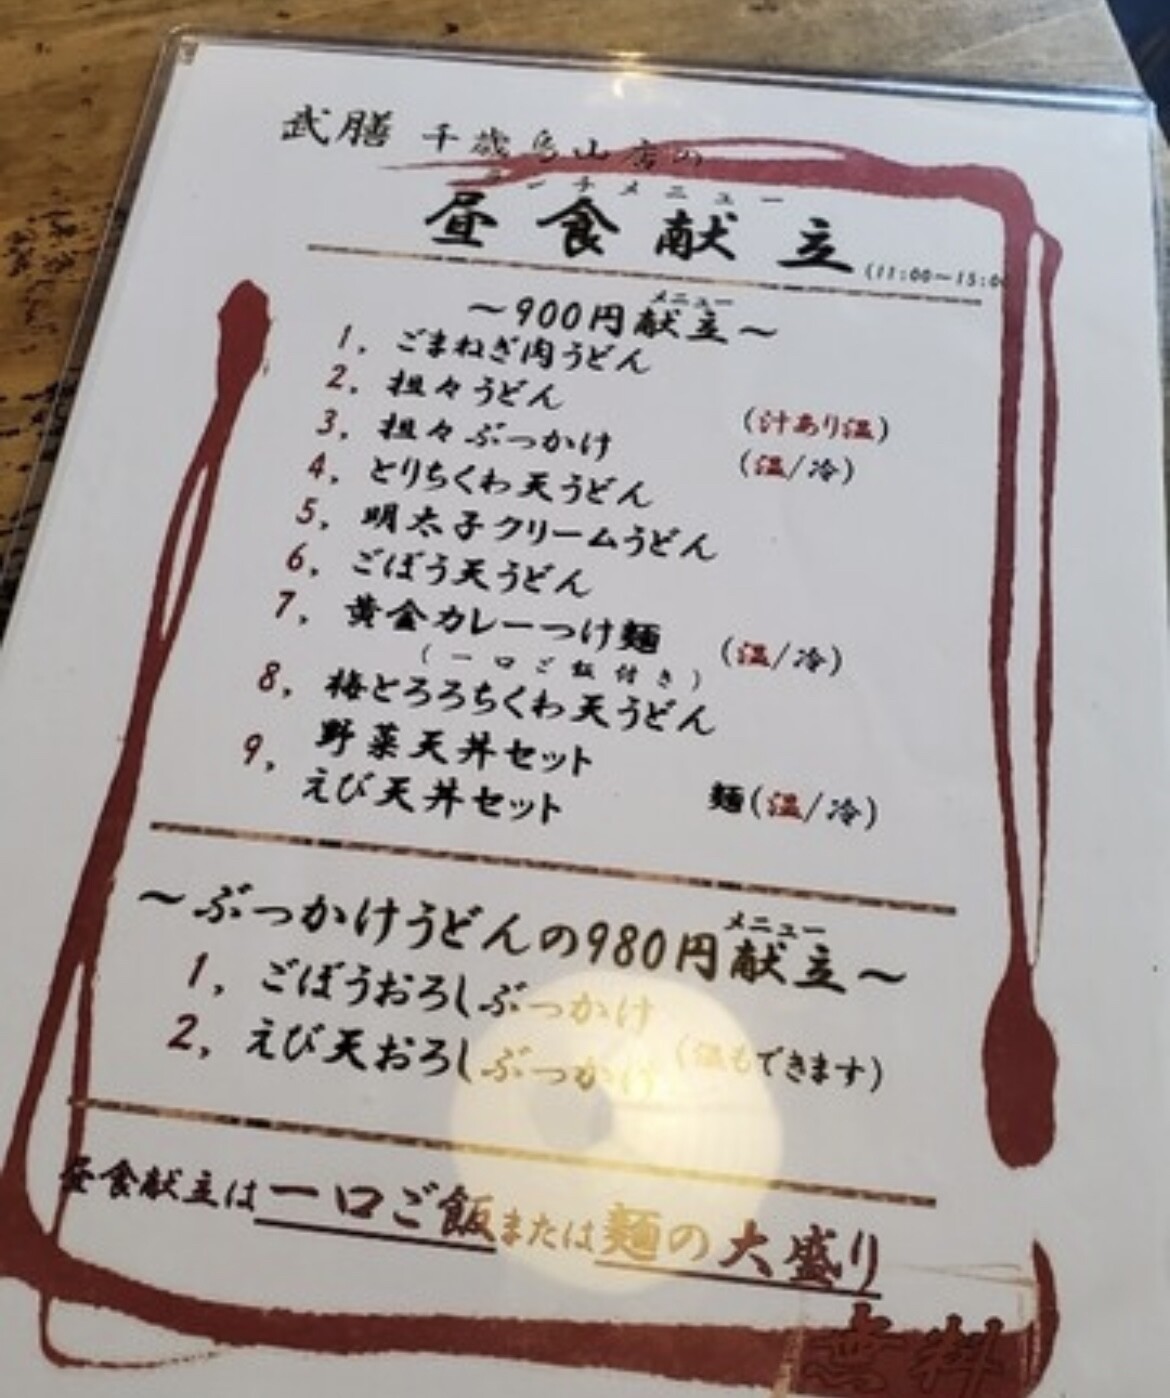 武膳 千歳烏山店の
ランチメニュー
昼食献立 (11:00~15:00
メニュー
~900円献立~
1, ごまねぎ肉うどん
2, 担々うどん (汁あり温)
3, 担々ぶっかけ (温/冷)
4, とりちくわ天うどん
5, 明太子クリームうどん
6, ごぼう天うどん
7, 黄金カレーつけ麺 (温/冷)
(一口ご飯付き)
8, 梅とろろちくわ天うどん
9, 野菜天丼セット
えび天丼セット 麺(温/冷)
メニュー
~ぶっかけうどんの980円献立~
1, ごぼうおろしぶっかけ
2, えび天おろしぶっかけ (温もできます)
昼食献立は一口ご飯または麺の大盛り
無料